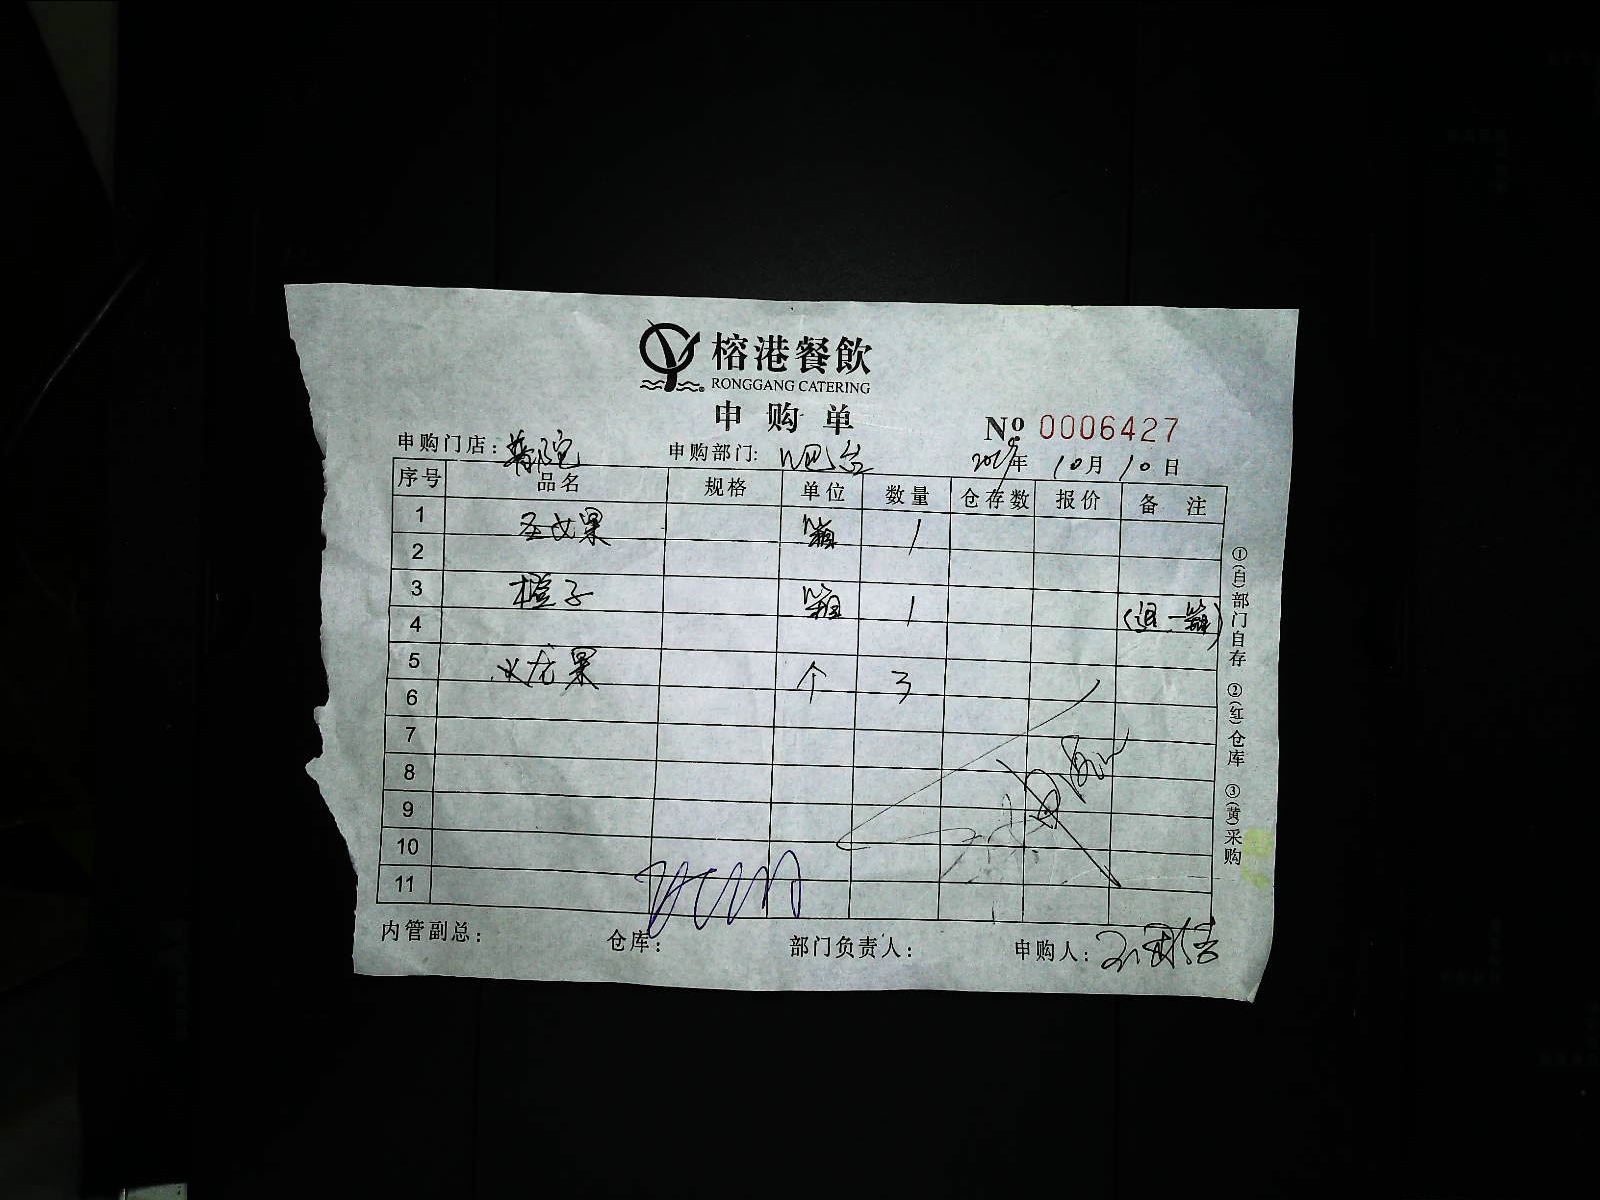 榕港餐飲
RONGGANG CATERING
申购单
№ 0006427
申购门店: 申购部门: 吧台 年 10月10日
序号 品名 规格 单位 数量 仓存数 报价 备 注
1 圣女果 箱 1
2
3 橙子 箱 1
4 (退一箱)
5 火龙果 个 3
6
7
8
9
10
11
①(白)部门自存 ②(红)仓库 ③(黄)采购
内管副总: 仓库: 部门负责人: 申购人: